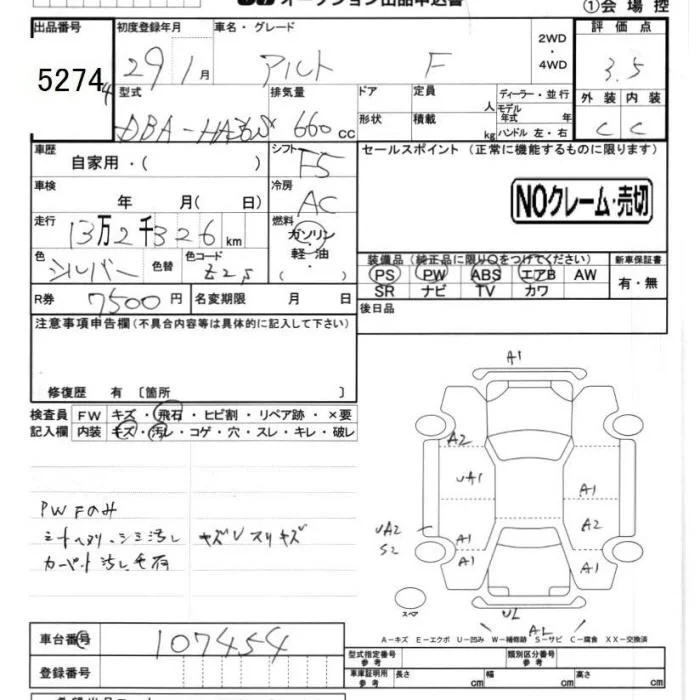 オークション出品申込書
①会場控
出品番号 初度登録年月 車名・グレード 2WD・4WD 評価点
5274 29 1月 アルト F 3.5
型式 排気量 ドア 定員 人 ディーラー・並行 外装 内装
形状 積載 kg モデル年式 年 ハンドル 左・右
DBA-HA36S 660 cc C C
車歴 自家用・( ) シフト F5 セールスポイント (正常に機能するものに限ります)
車検 年 月( 日) 冷房 AC
NOクレーム・売切
走行 13万2千326km 燃料 ガソリン・軽油
色 シルバー 色替 色コード Z2S
装備品 (純正品に限り○をつけてください) 新車保証書
PS PW ABS エアB AW 有・無
SR ナビ TV カワ
R券 7500円 名変期限 月 日
後日品
注意事項申告欄(不具合内容等は具体的に記入して下さい)
修復歴 有 〔箇所 〕
検査員 FW キズ・飛石・ヒビ割・リペア跡・×要
記入欄 内装 キズ・汚レ・コゲ・穴・スレ・キレ・破レ
PWFのみ
シートヘタリ、シミ汚し キズUスリキズ
カーペット汚し
A1
A2
UA1 A1
UA2 A2
S2 A1 A1
A1
スペア
UL
AL
A-キズ E-エクボ U-凹み W-補修跡 S-サビ C-腐食 XX-交換済
車台番号 107454
型式指定番号 参考 類別区分番号 参考
登録番号 車庫証明用 参考 長さ cm 幅 cm 高さ cm